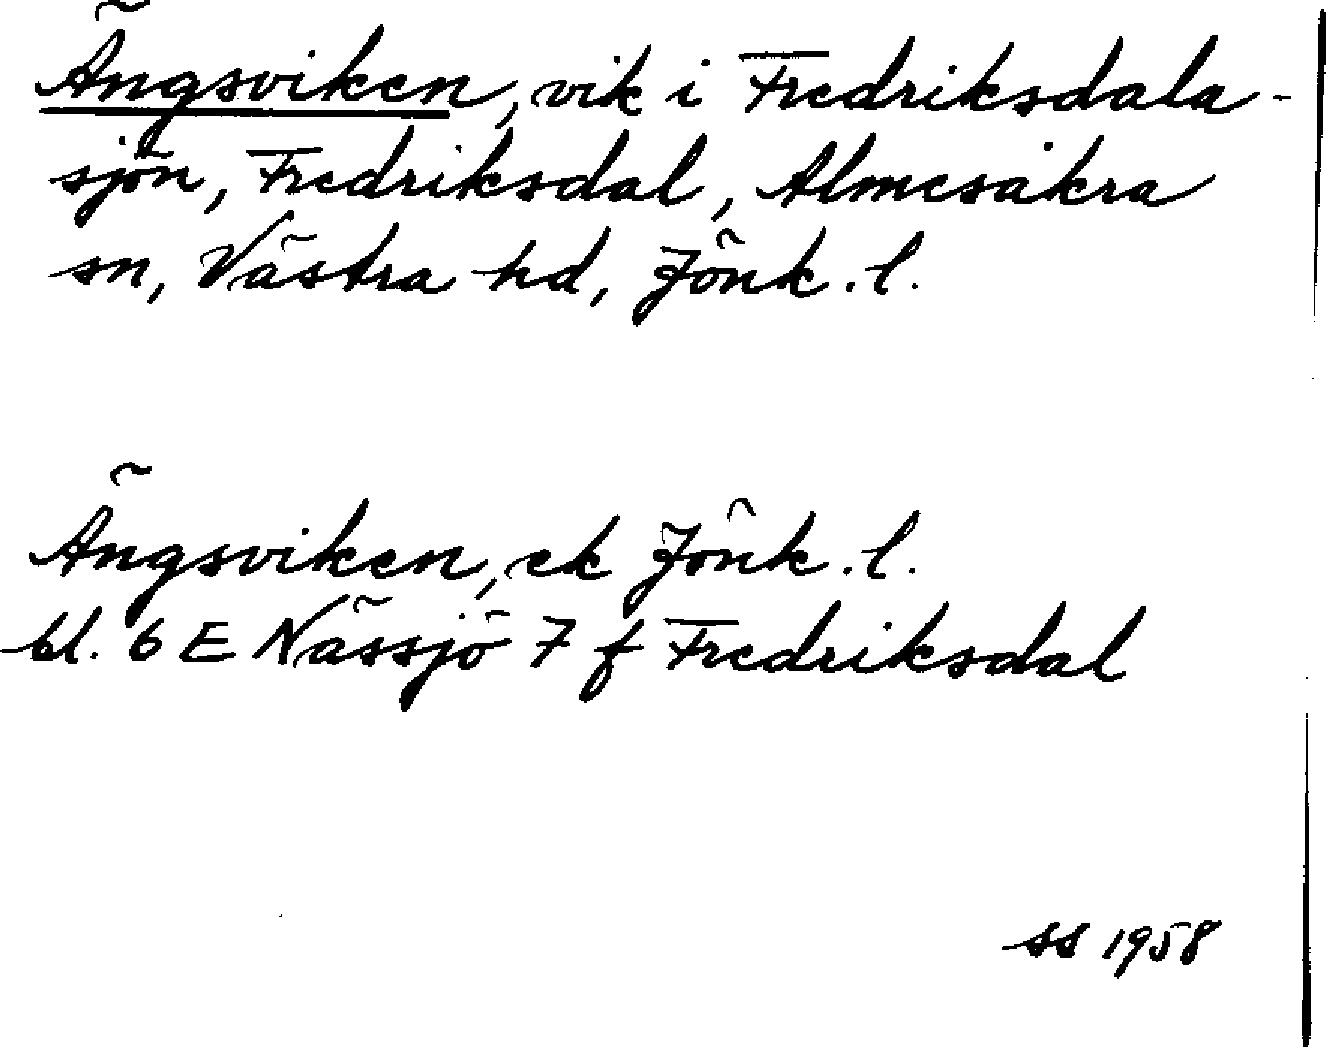 Ängsviken, vik i Fredriksdala-
sjön, Fredriksdal, Almesåkra
sn, Västra hd, Jönk. l.
Ängsviken, ek Jönk. l.
bl. 6 E Nässjö 7 f Fredriksdal
SS 1958